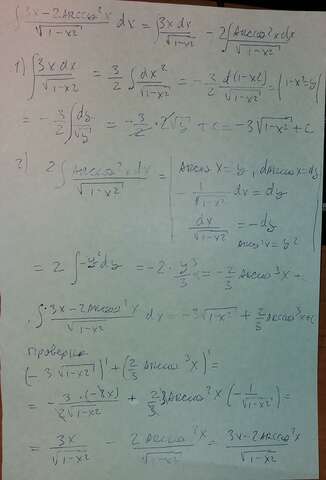 ∫ 3x-2Arccos²x / √(1-x²) dx = ∫ 3x dx / √(1-x²) - 2∫ Arccos²x dx / √(1-x²)
1) ∫ 3x dx / √(1-x²) = 3/2 ∫ dx² / √(1-x²) = -3/2 ∫ d(1-x²) / √(1-x²) = |1-x²=y|
= -3/2 ∫ dy/√y = -3/2 · 2√y + c = -3√(1-x²) + c
2) 2∫ Arccos²x dx / √(1-x²) = | Arccos x = y, dArccos x = dy
- 1/√(1-x²) dx = dy
dx/√(1-x²) = -dy
Arccos²x = y²
= 2 ∫ -y² dy = -2 · y³/3 = -2/3 Arccos³x + c
∫ 3x-2Arccos²x / √(1-x²) dx = -3√(1-x²) + 2/3 Arccos³x + c
Проверка
(-3√(1-x²))' + (2/3 Arccos³x)' =
= - 3·(-2x) / 2√(1-x²) + 2/3 · 3Arccos²x (- 1/√(1-x²)) =
= 3x/√(1-x²) - 2Arccos²x/√(1-x²) = 3x-2Arccos²x / √(1-x²)